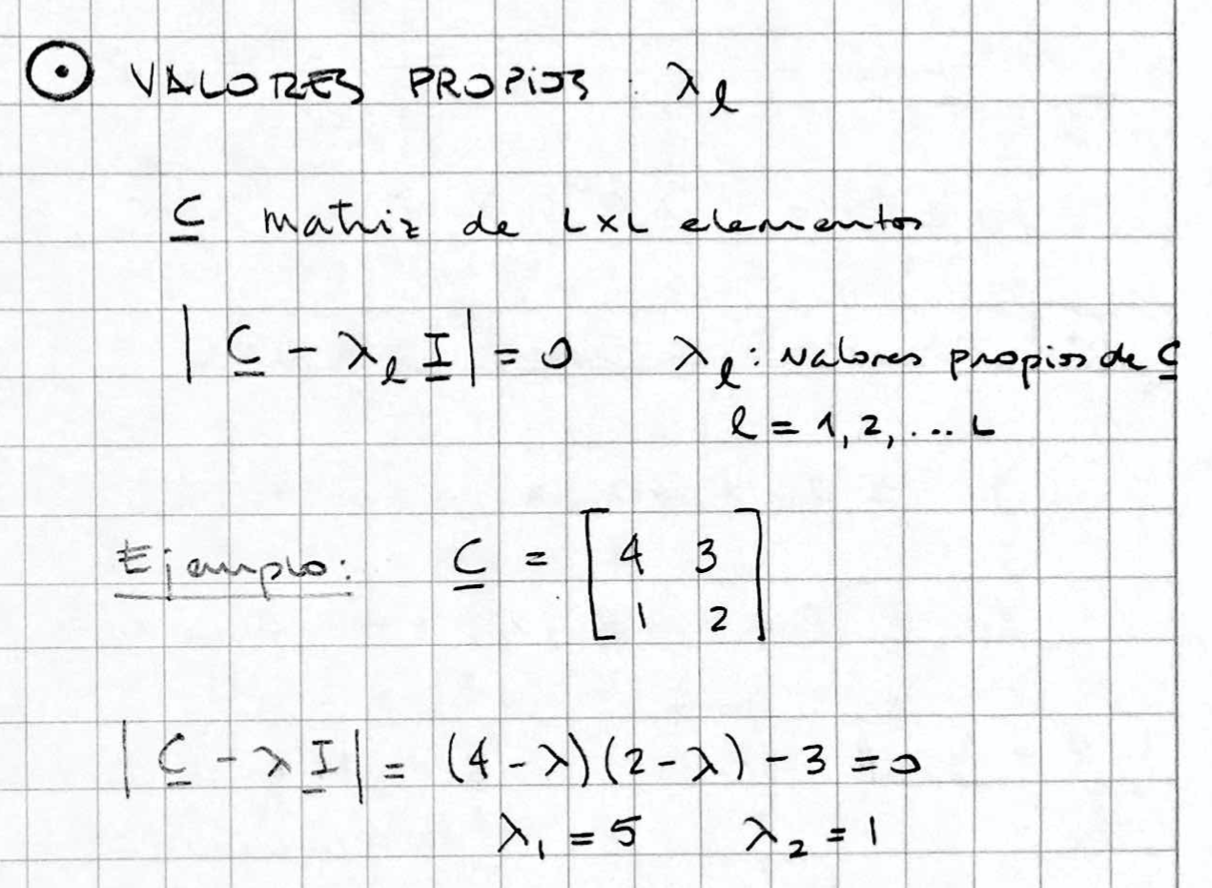 ⊙ VALORES PROPIOS λₗ
C̲ matriz de L×L elementos
| C̲ - λₗ I̲ | = 0   λₗ: valores propios de C̲
l = 1, 2, ... L
Ejemplo: C̲ = [4 3
1 2]
| C̲ - λ I̲ | = (4 - λ)(2 - λ) - 3 = 0
λ₁ = 5   λ₂ = 1